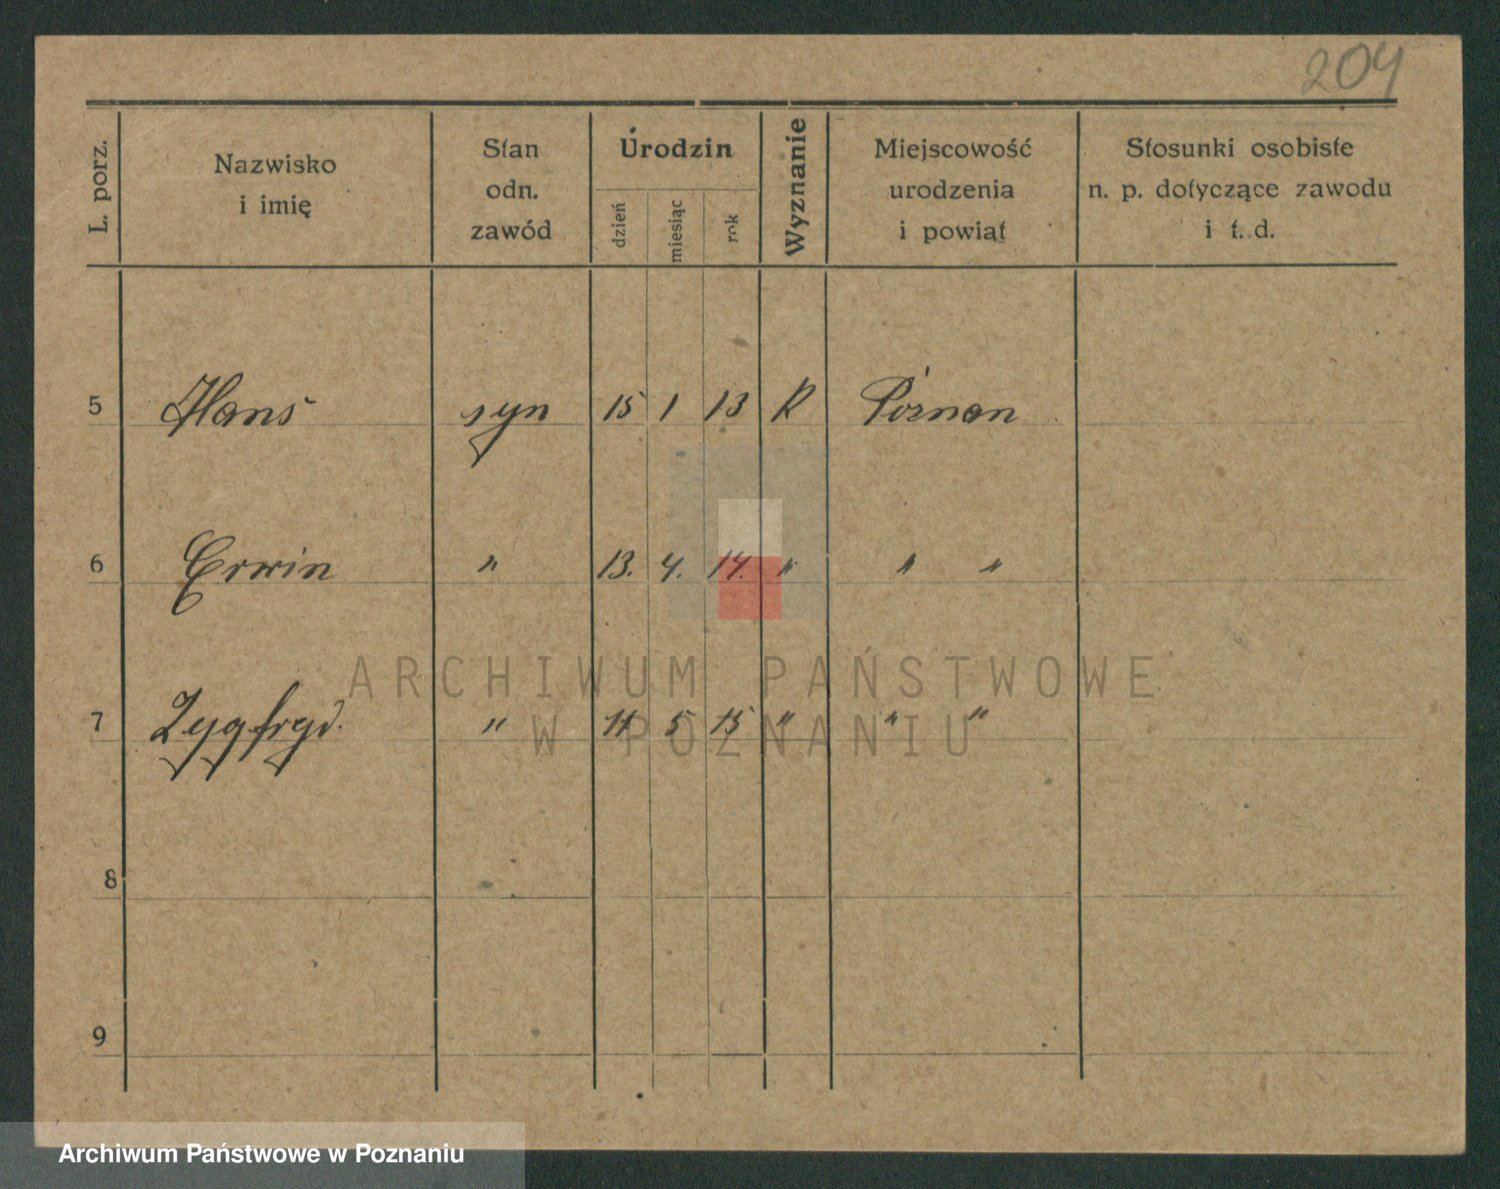 204
L. porz. Nazwisko i imię Stan odn. zawód Urodzin dzień miesiąc rok Wyznanie Miejscowość urodzenia i powiat Stosunki osobiste n. p. dotyczące zawodu i t. d.
5 Hans syn 15 1 13 R Poznan
6 Erwin " 13. 4. 14. " " "
ARCHIWUM PAŃSTWOWE
7 Zygfryd. " 11 5 15 " " "
W POZNANIU
8
9
Archiwum Państwowe w Poznaniu